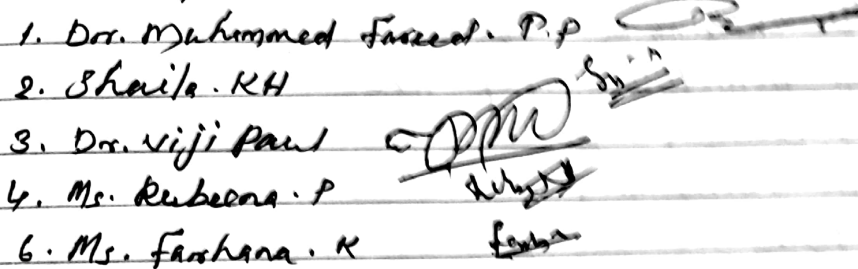 1. Dr. Muhammed Fareed. P.P
2. Shaila. KH
3. Dr. Viji Paul
4. Ms. Rubeena. P
6. Ms. Farshana. K